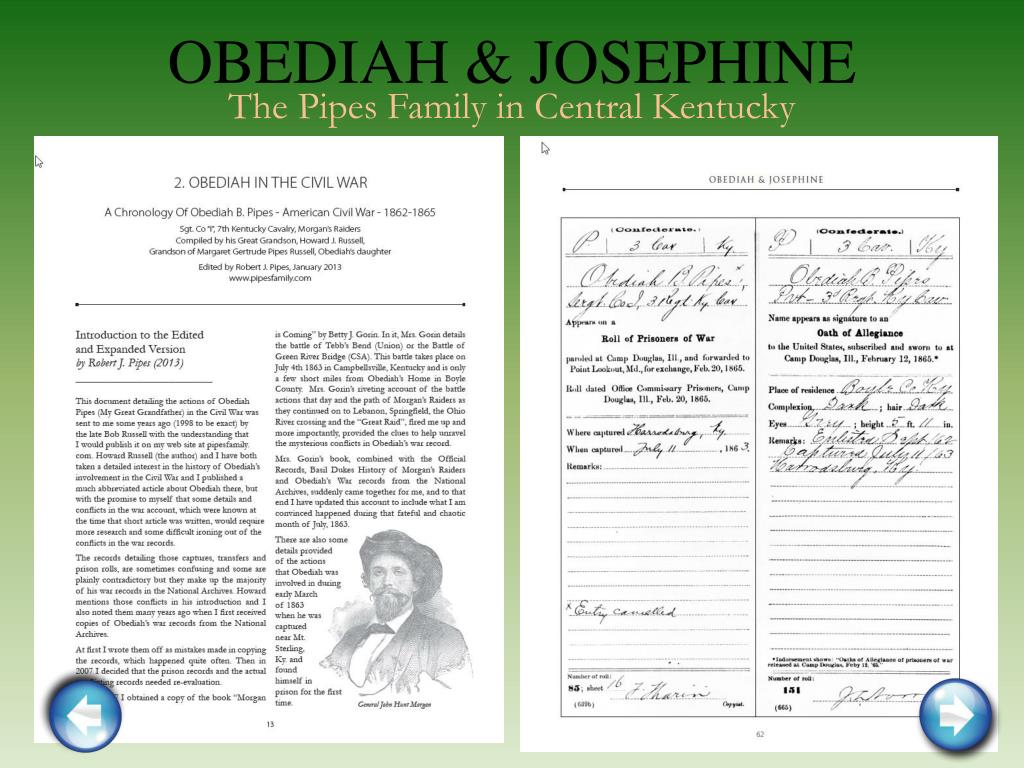 OBEDIAH & JOSEPHINE
The Pipes Family in Central Kentucky
2. OBEDIAH IN THE CIVIL WAR
A Chronology Of Obediah B. Pipes - American Civil War - 1862-1865
Sgt. Co "I", 7th Kentucky Cavalry, Morgan's Raiders
Compiled by his Great Grandson, Howard J. Russell,
Grandson of Margaret Gertrude Pipes Russell, Obediah's daughter
Edited by Robert J. Pipes, January 2013
www.pipesfamily.com
Introduction to the Edited
and Expanded Version
by Robert J. Pipes (2013)
This document detailing the actions of Obediah
Pipes (My Great Grandfather) in the Civil War was
sent to me some years ago (1998 to be exact) by
the late Bob Russell with the understanding that
I would publish it on my web site at pipesfamily.
com. Howard Russell (the author) and I have both
taken a detailed interest in the history of Obediah's
involvement in the Civil War and I published a
much abbreviated article about Obediah there, but
with the promise to myself that some details and
conflicts in the war account, which were known at
the time that short article was written, would require
more research and some difficult ironing out of the
conflicts in the war records.
The records detailing those captures, transfers and
prison rolls, are sometimes confusing and some are
plainly contradictory but they make up the majority
of his war records in the National Archives. Howard
mentions those conflicts in his introduction and I
also noted them many years ago when I first received
copies of Obediah's war records from the National
Archives.
At first I wrote them off as mistakes made in copying
the records, which happened quite often. Then in
2007 I decided that the prison records and the actual
records needed re-evaluation.
I obtained a copy of the book "Morgan
is Coming" by Betty J. Gorin. In it, Mrs. Gorin details
the battle of Tebb's Bend (Union) or the Battle of
Green River Bridge (CSA). This battle takes place on
July 4th 1863 in Campbellsville, Kentucky and is only
a few short miles from Obediah's Home in Boyle
County. Mrs. Gorin's riveting account of the battle
actions that day and the path of Morgan's Raiders as
they continued on to Lebanon, Springfield, the Ohio
River crossing and the "Great Raid", fired me up and
more importantly, provided the clues to help unravel
the mysterious conflicts in Obediah's war record.
Mrs. Gorin's book, combined with the Official
Records, Basil Dukes History of Morgan's Raiders
and Obediah's War records from the National
Archives, suddenly came together for me, and to that
end I have updated this account to include what I am
convinced happened during that fateful and chaotic
month of July, 1863.
There are also some
details provided
of the actions
that Obediah was
involved in during
early March
of 1863
when he was
captured
near Mt.
Sterling,
Ky. and
found
himself in
prison for the first
time.
General John Hunt Morgan
13
OBEDIAH & JOSEPHINE
(Confederate.)
P 3 Cav Ky.
Obediah B Pipes x,
Sergt. Co. I, 3 Regt Ky. Cav
Appears on a
Roll of Prisoners of War
paroled at Camp Douglas, Ill., and forwarded to
Point Lookout, Md., for exchange, Feb. 20, 1865.
Roll dated Office Commissary Prisoners, Camp
Douglas, Ill., Feb. 20, 1865.
Where captured Harrodsburg, Ky.
When captured July 11, 1863.
Remarks:
x Entry cancelled
Number of roll:
85; sheet 16
(639b) Copyist.
(Confederate.)
P 3 Cav. Ky
Obediah B. Pipes
Pvt - 3d Regt. Ky Cav
Name appears as signature to an
Oath of Allegiance
to the United States, subscribed and sworn to at
Camp Douglas, Ill., February 12, 1865.*
Place of residence Boyle Co Ky
Complexion, Dark; hair Dark
Eyes Grey; height 5 ft. 11 in.
Remarks: Enlisted Sept/62
Captured July 11/63
Harrodsburg, Ky
*Indorsement shows: "Oaths of Allegiance of prisoners of war
released at Camp Douglas, Feb'y 12, '65."
Number of roll:
151
(665)
62